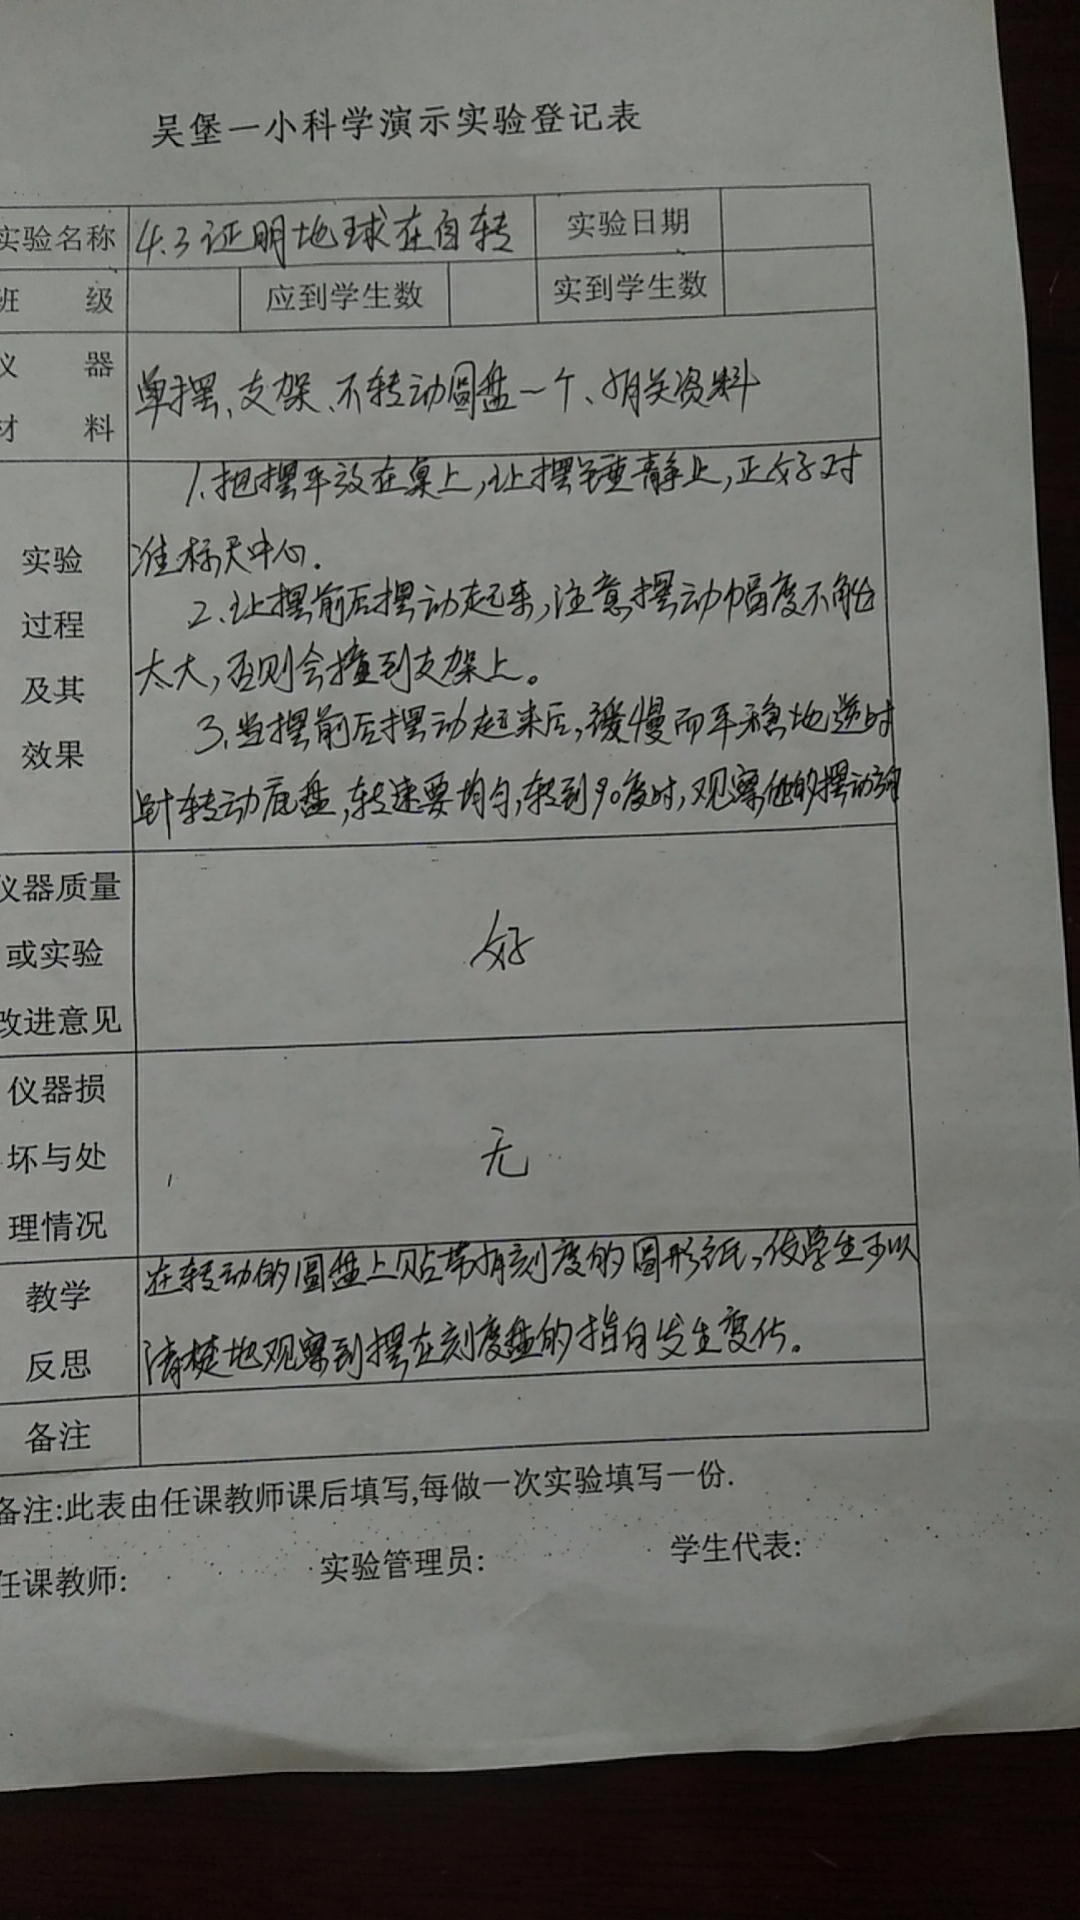 吴堡一小科学演示实验登记表
实验名称 4.3证明地球在自转 实验日期
班 级 应到学生数 实到学生数
仪 器
材 料
单摆、支架、不转动圆盘一个、有关资料
实验
过程
及其
效果
1.把摆平放在桌上,让摆锤静止,正好对
准标尺中心.
2.让摆前后摆动起来,注意摆动幅度不能
太大,否则会撞到支架上。
3.当摆前后摆动起来后,缓慢而平稳地逆时
针转动底盘,转速要均匀,转到90度时,观察他的摆动方向
仪器质量
或实验
改进意见
好
仪器损
坏与处
理情况
无
教学
反思
在转动的圆盘上贴带有刻度的圆形纸,使学生可以
清楚地观察到摆在刻度盘的指向发生变化。
备注
备注:此表由任课教师课后填写,每做一次实验填写一份.
任课教师: 实验管理员: 学生代表: